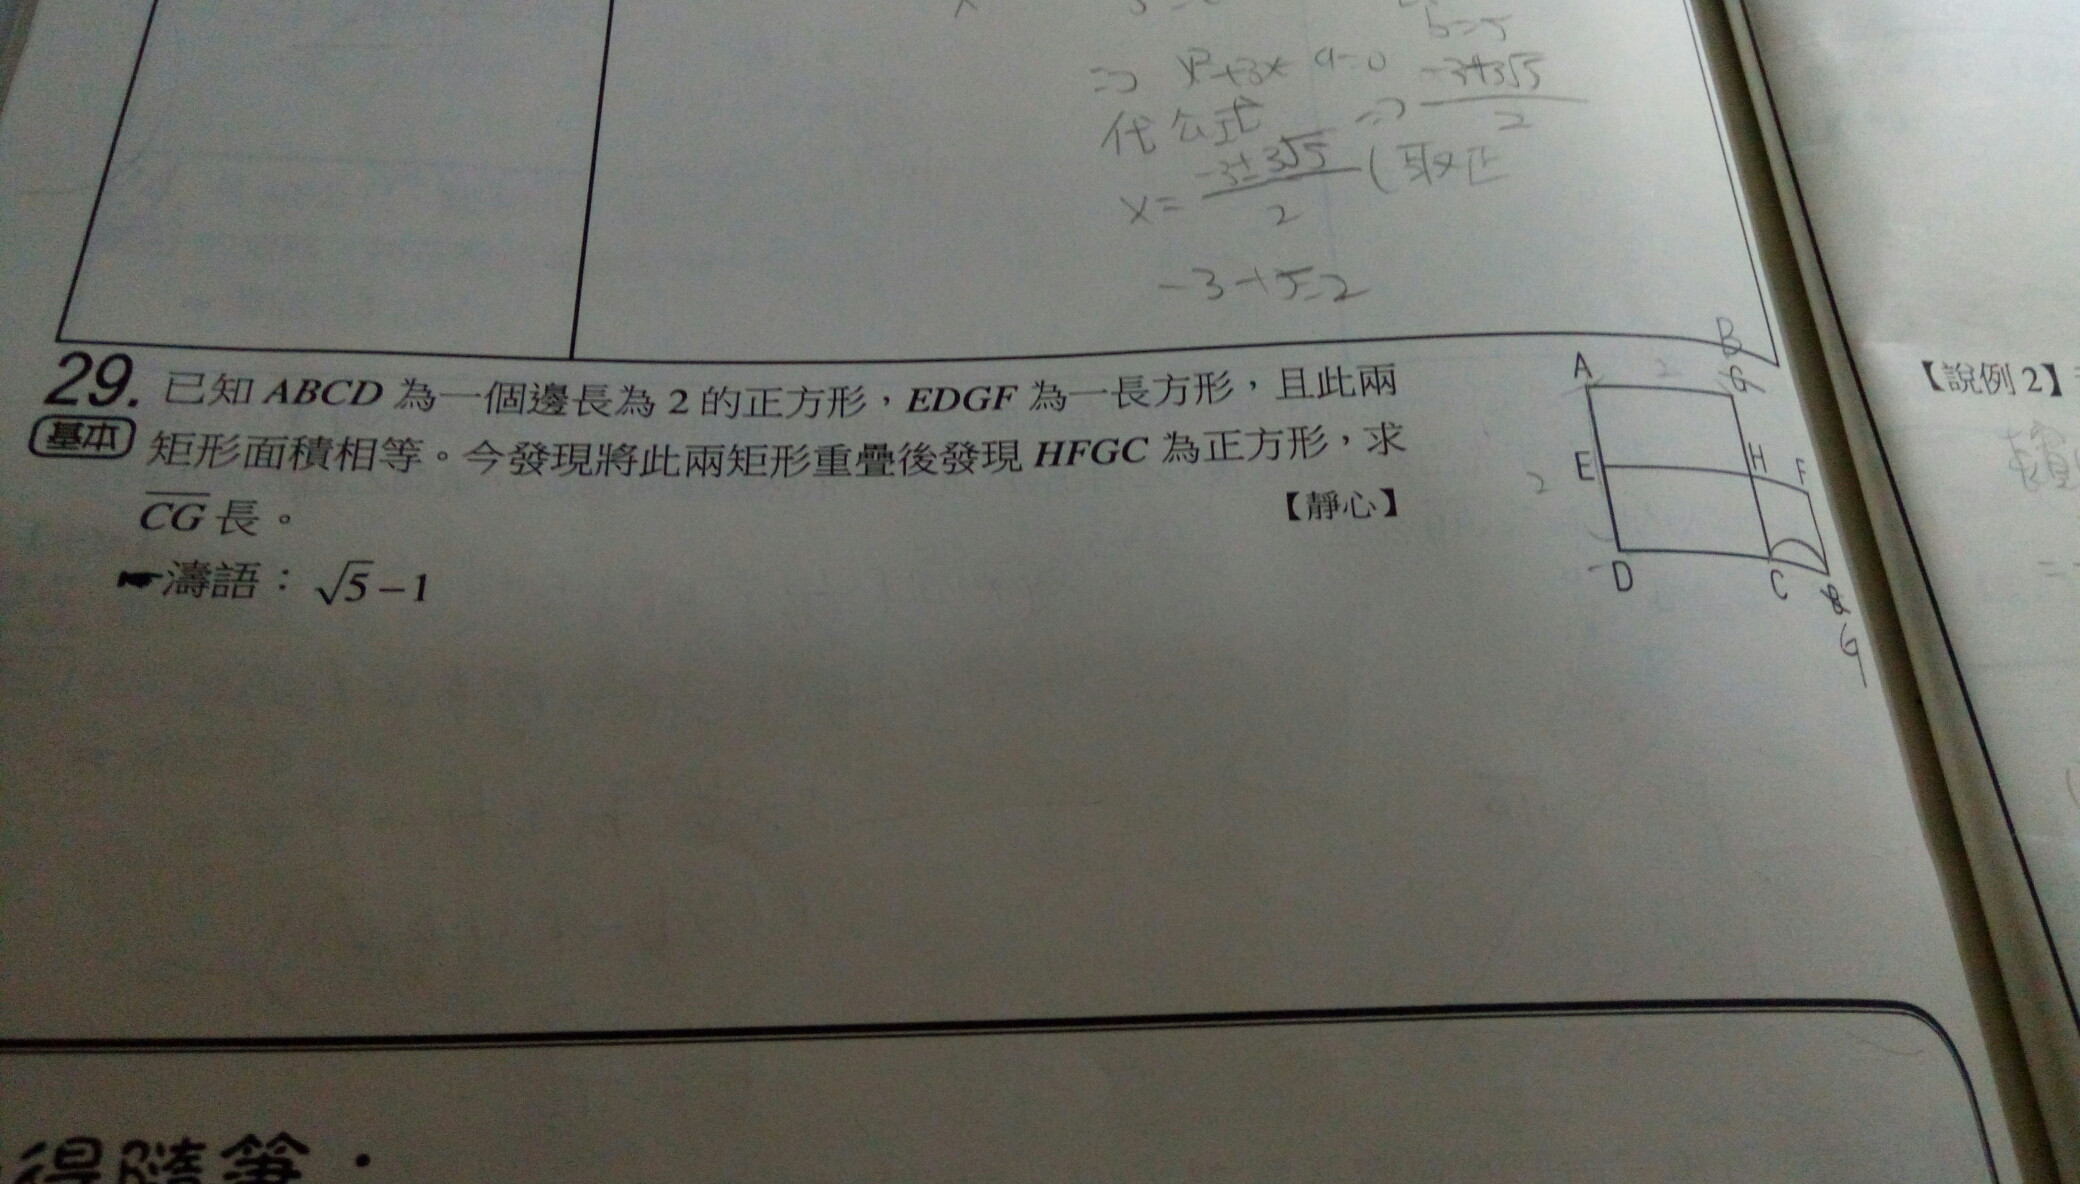 b=5
⇒ x²+3x-9=0
-3+3√5
⇒
2
代公式
x= -3±3√5 (取正
2
-3+5=2
29. 已知 ABCD 為一個邊長為 2 的正方形，EDGF 為一長方形，且此兩
基本 矩形面積相等。今發現將此兩矩形重疊後發現 HFGC 為正方形，求
CG 長。
【靜心】
濤語： √5−1
A 2 B
G
E H F
2
D C
G
【說例 2】
得隨筆：